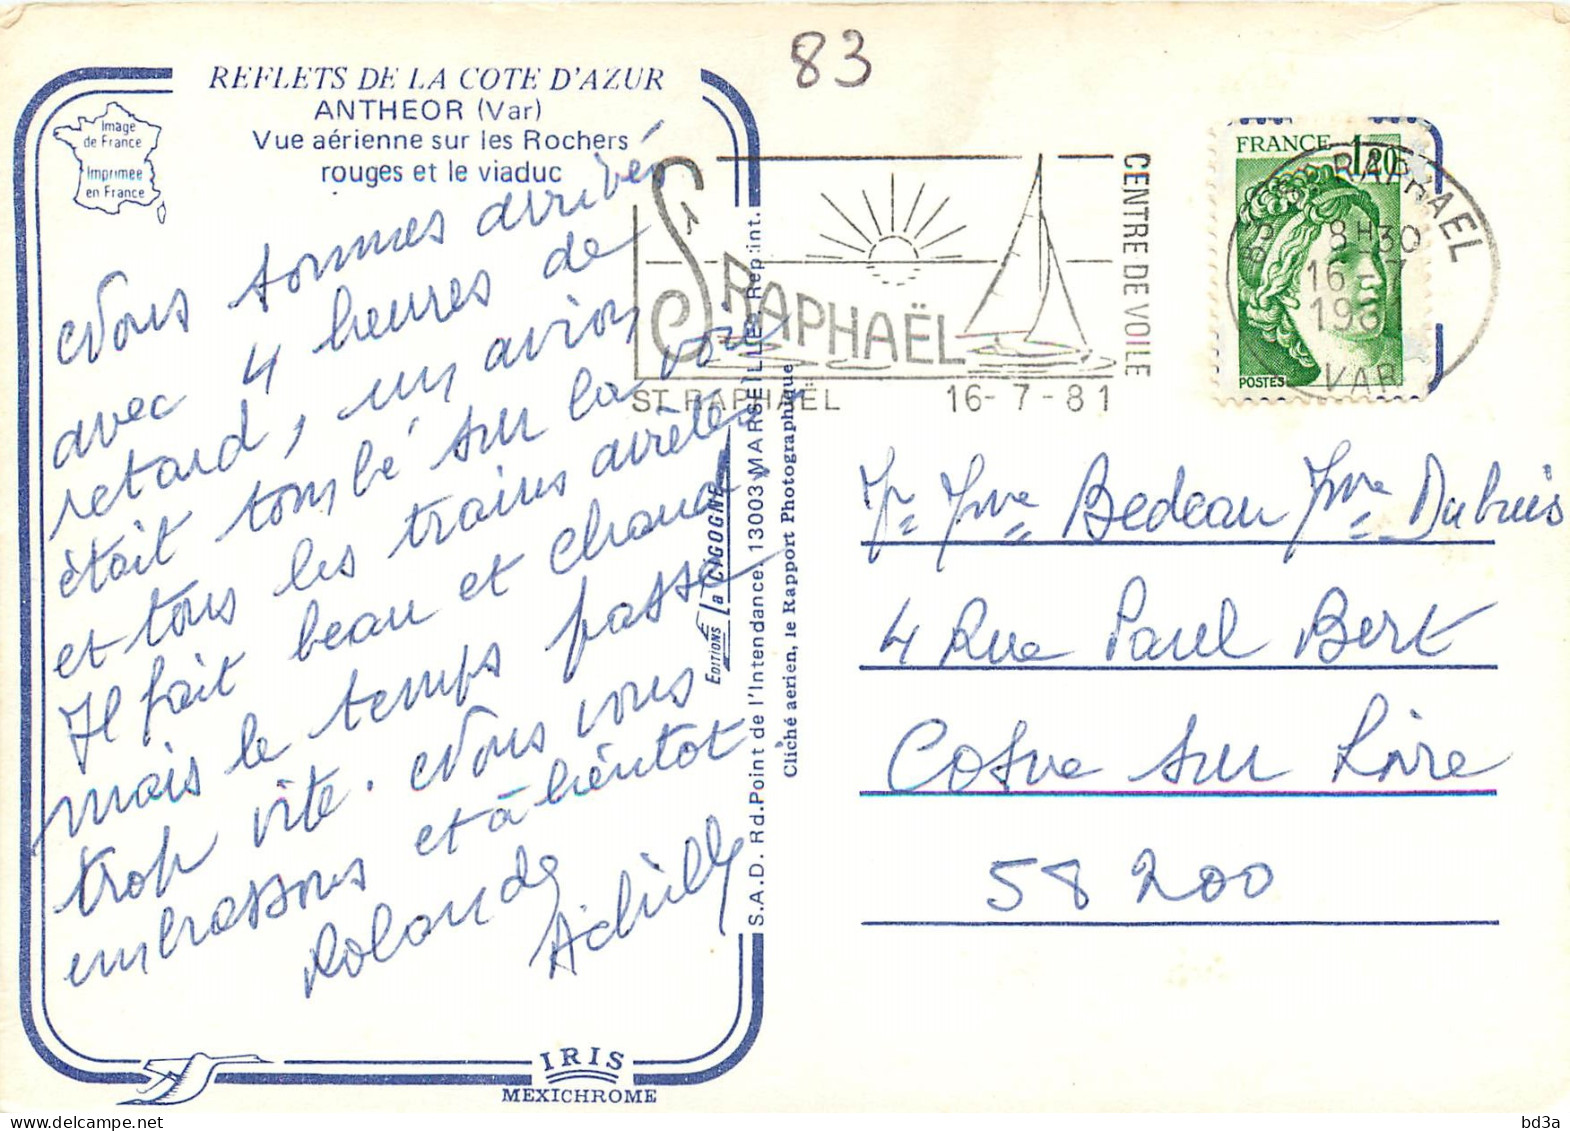 83
REFLETS DE LA COTE D'AZUR
ANTHEOR (Var)
Vue aérienne sur les Rochers
rouges et le viaduc
Image
de France
Imprimée
en France
Nous sommes arrivés
avec 4 heures de
retard, un avion
était tombé sur la voie
et tous les trains arrêtés
Il fait beau et chaud,
mais le temps passe
trop vite. Nous vous
embrassons et à bientôt
Rolande
Achille
IRIS
MEXICHROME
EDITIONS La CIGOGNE
S.A.D. Rd.Point de l'Intendance, 13003 MARSEILLE Rep. int.
Cliché aerien, le Rapport Photographique
St RAPHAËL
CENTRE DE VOILE
ST RAPHAËL 16-7-81
FRANCE 1,20
POSTES
83 ST RAPHAEL
8H30
16-7
1981
VAR
Mr Mme Bedeau Mme Dubuis
4 Rue Paul Bert
Cosne sur Loire
58 200
bd3a